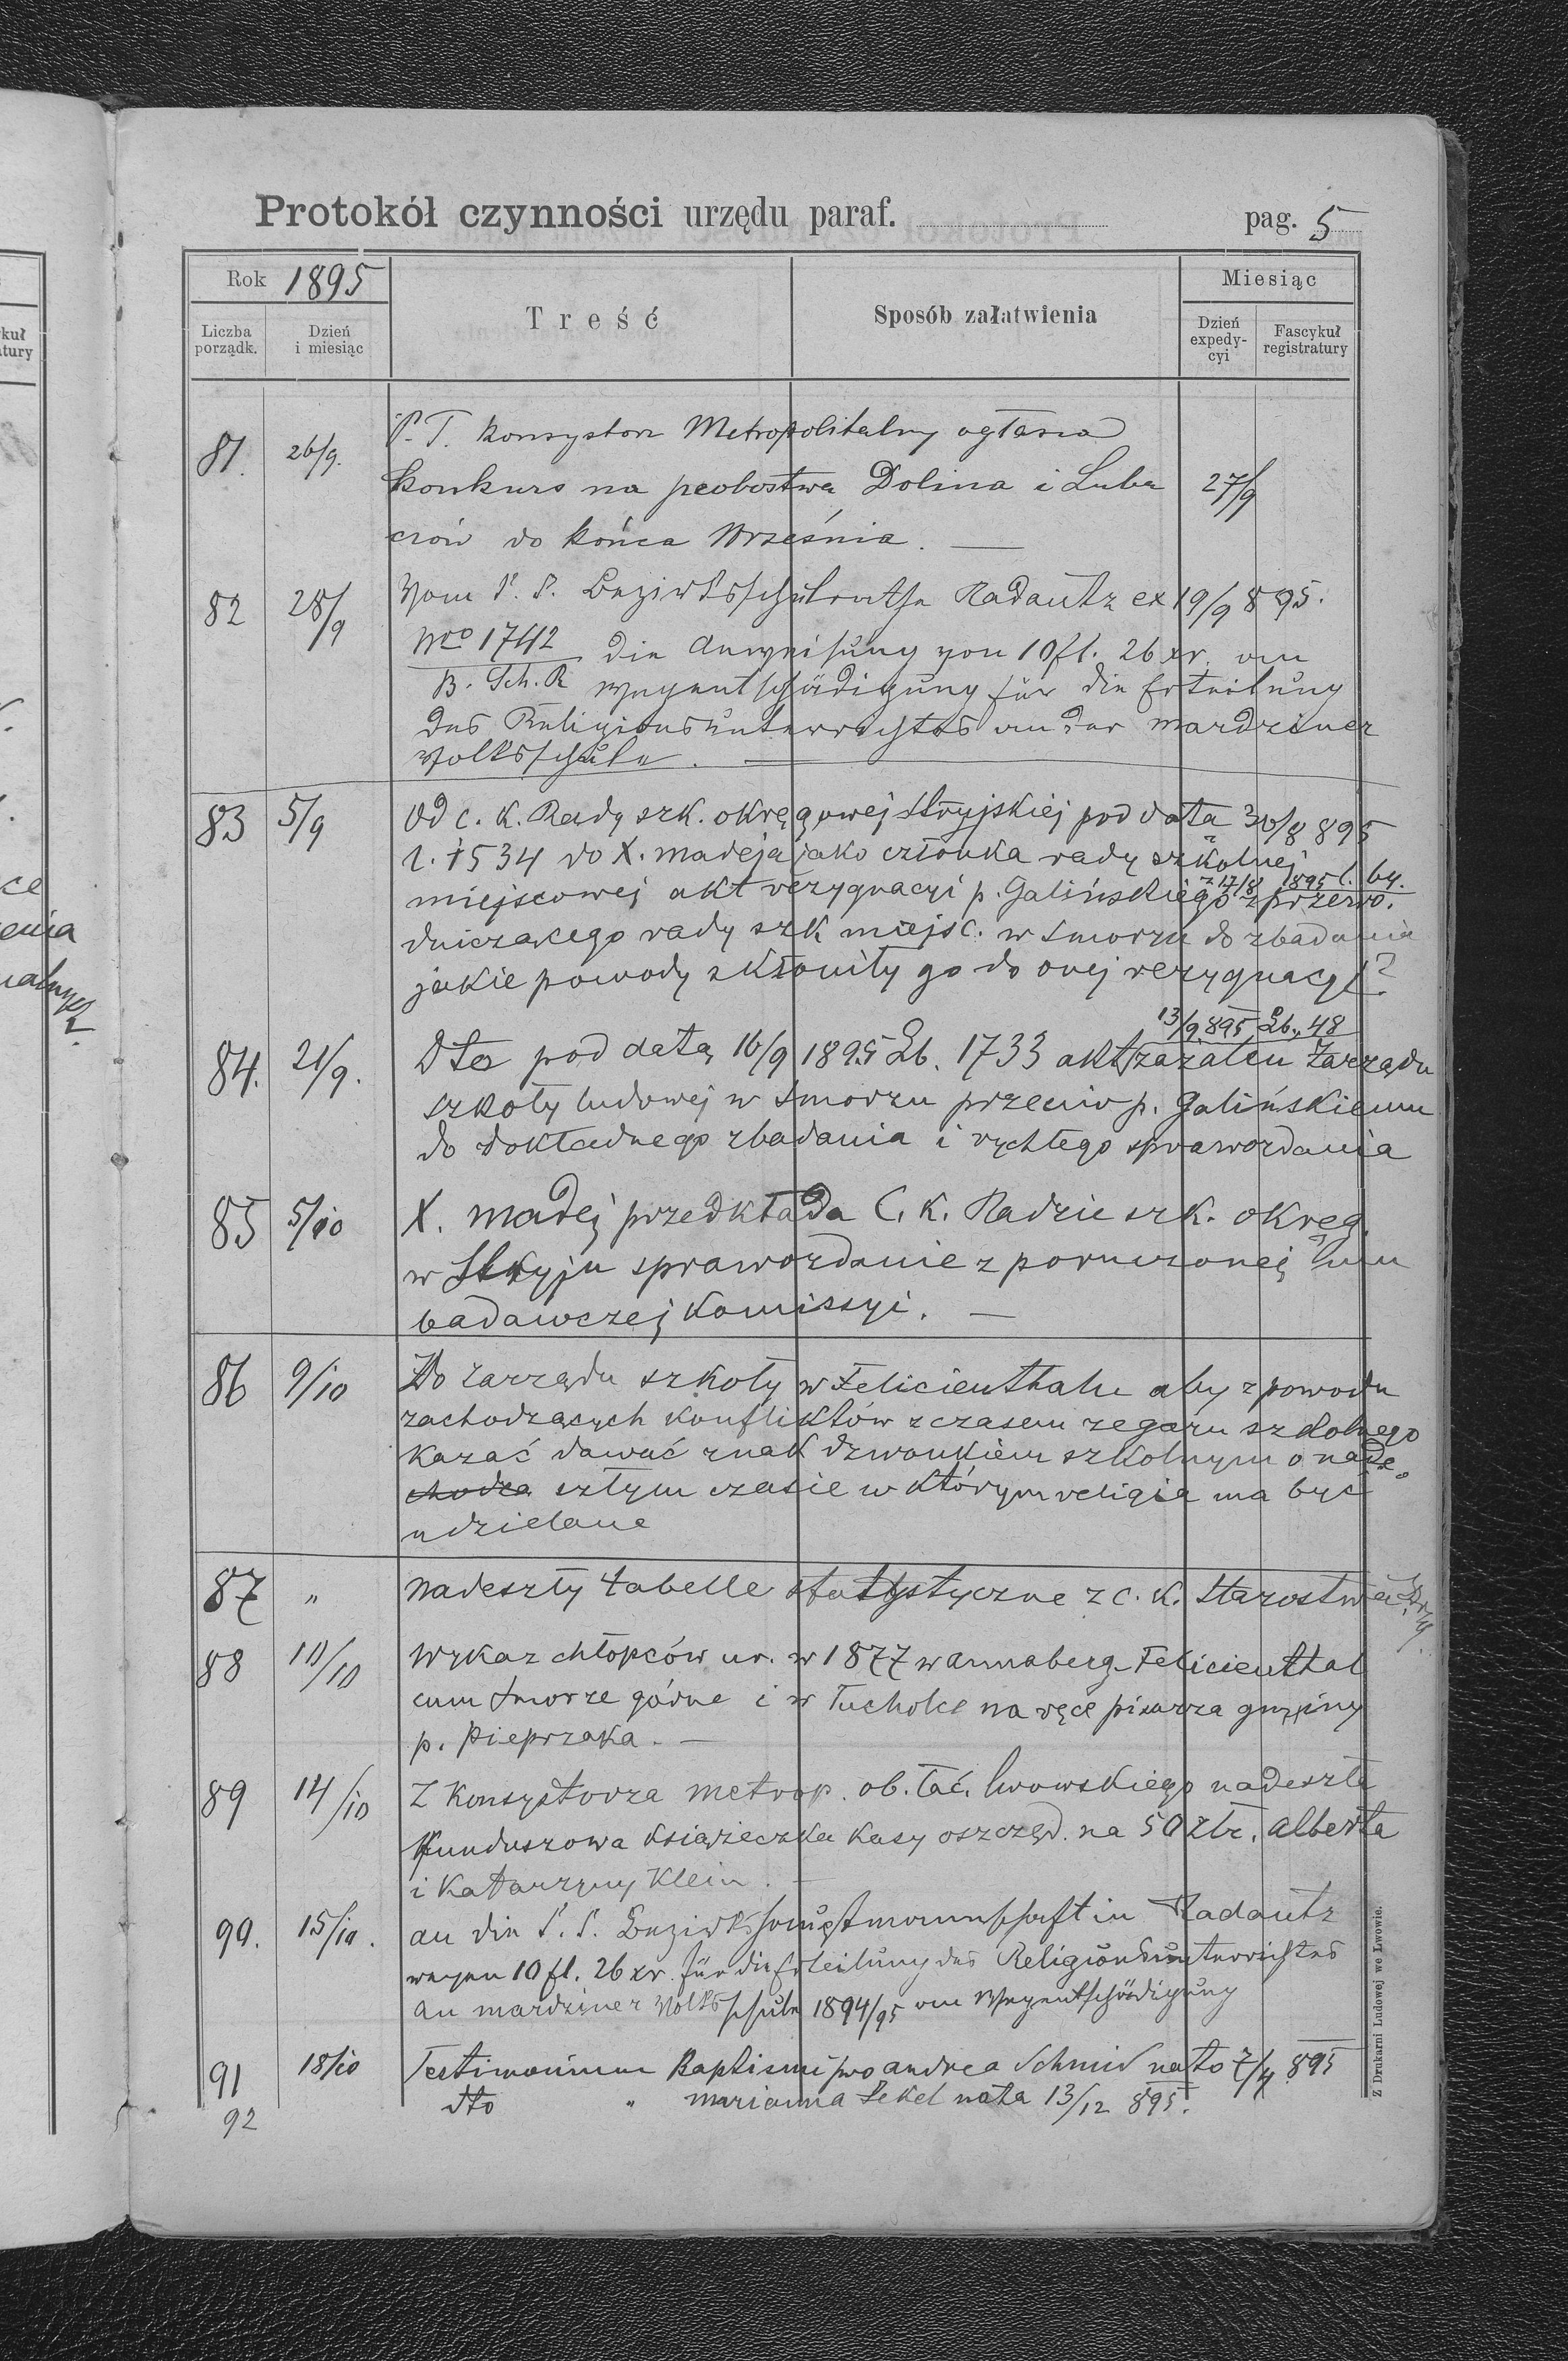 Protokół czynności urzędu paraf. pag. 5
Rok 1895
Treść
Sposób załatwienia
Miesiąc
Liczba porządk.
Dzień i miesiąc
Dzień expedy-cyi
Fascykuł registratury
81. 26/9. P. T. Konsystorz Metropolitalny ogłasza
konkurs na probostwa Dolina i Luba 27/9
czów do końca Września. —
82 28/9 Vom k. k. Bezirksschulrathe Radautz ex 19/9 895.
Nro 1742 die Anweisung von 10 fl. 26 xr. an
B. Sch. R Wegentschädigung für die Erteilung
des Religionsunterrichtes an der Mardziner
Volksschule. —
83 5/9 Od c. k. Rady szk. okręgowej Stryjskiej pod datą 30/8 895
l. 1534 do X. Madeja jako członka rady szkolnej
z 17/8 1895 l. 64.
miejscowej akt rezygnacyi p. Galińskiego z przewo.
dniczącego rady szk miejsc. w Smorzu do zbadania
jakie powody skłoniły go do onej rezygnacyi?
13/9 895 Lb. 48
84. 21/9. Dto pod datą 16/9 1895 Lb. 1733 akt zażaleń Zarządu
szkoły ludowej w Smorzu przeciw p. Galińskiemu
do dokładnego zbadania i rychłego sprawozdania
85 5/10 X. Madej przedkłada C. K. Radzie szk. okręg.
w Stryju sprawozdanie z poruczonej mu
badawczej Komissyi. —
86 9/10 Do Zarządu szkoły w Felicienthalu aby z powodu
zachodzących konfliktów z czasem zegaru szkolnego
kazać dawać znak dzwonkiem szkolnym o nade-
chodzą szłym czasie w którym religia ma być
udzielane
87 " Nadeszły tabelle statystyczne z c. k. Starostwa Stryj.
88 10/10 Wykaz chłopców ur. w 1877 w Annaberg-Felicienthal
cum Smorze górne i w Tucholce na ręce pisarza gminy
p. Pieprzaka. —
89 14/10 Z Konsystorza metrop. ob. łać. lwowskiego nadeszła
funduszowa książeczka kasy oszczęd. na 50 złr. Alberta
i Katarzyny Klein. —
90. 15/10. An die k. k. Bezirkshauptmannschaft in Radautz
wegen 10 fl. 26 xr. für die Erteilung des Religionsunterrichtes
an Mardziner Volksschule 1894/95 an Wegentschädigung
91 18/10 Testimonium Baptismi pro Andrea Schmid nato 7/4 895
92 dto " Marianna Sekel nata 13/12 895.
Z Drukarni Ludowej we Lwowie.
kuł
tury
ce
enia